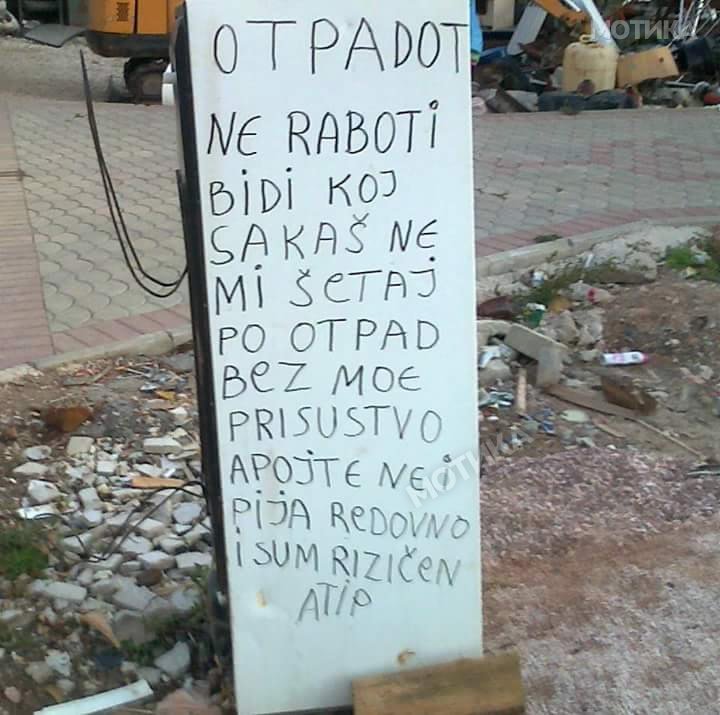 МОТИКА
OTPADOT
NE RABOTI
BIDI KOJ
SAKAŠ NE
MI ŠETAJ
PO OTPAD
BEZ MOE
PRISUSTVO
APOJTE NEI
PIJA REDOVNO
I SUM RIZIČEN
ATIP
МОТИКА